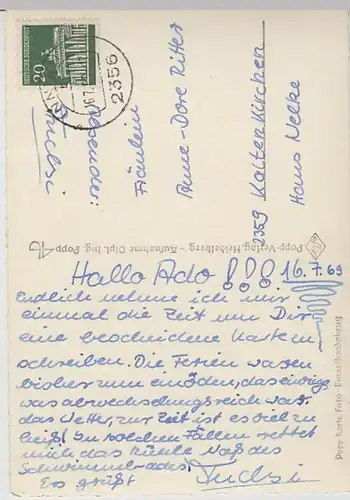 DEUTSCHE BUNDESPOST
20
2356
16.7.
Absender:
Fuchsi
Fräulein
Anne-Dore Ritter
2359 Kaltenkirchen
Hans Nelke
Popp-Verlag, Heidelberg – Aufnahme Dipl. Ing. Popp
Popp-Karte Foto - Einzelhandabzug
Hallo Ado!!! 16.7.69
Endlich nehme ich mir
einmal die Zeit um Dir
eine bescheidene Karte zu
schreiben. Die Ferien waren
bisher zum anöden, das einzige
was abwechslungsreich war:
das Wetter, zur Zeit ist es viel zu
heiß! In solchen Fällen rettet
mich das kühle Naß des
Schwimmbades!
Es grüßt Fuchsi